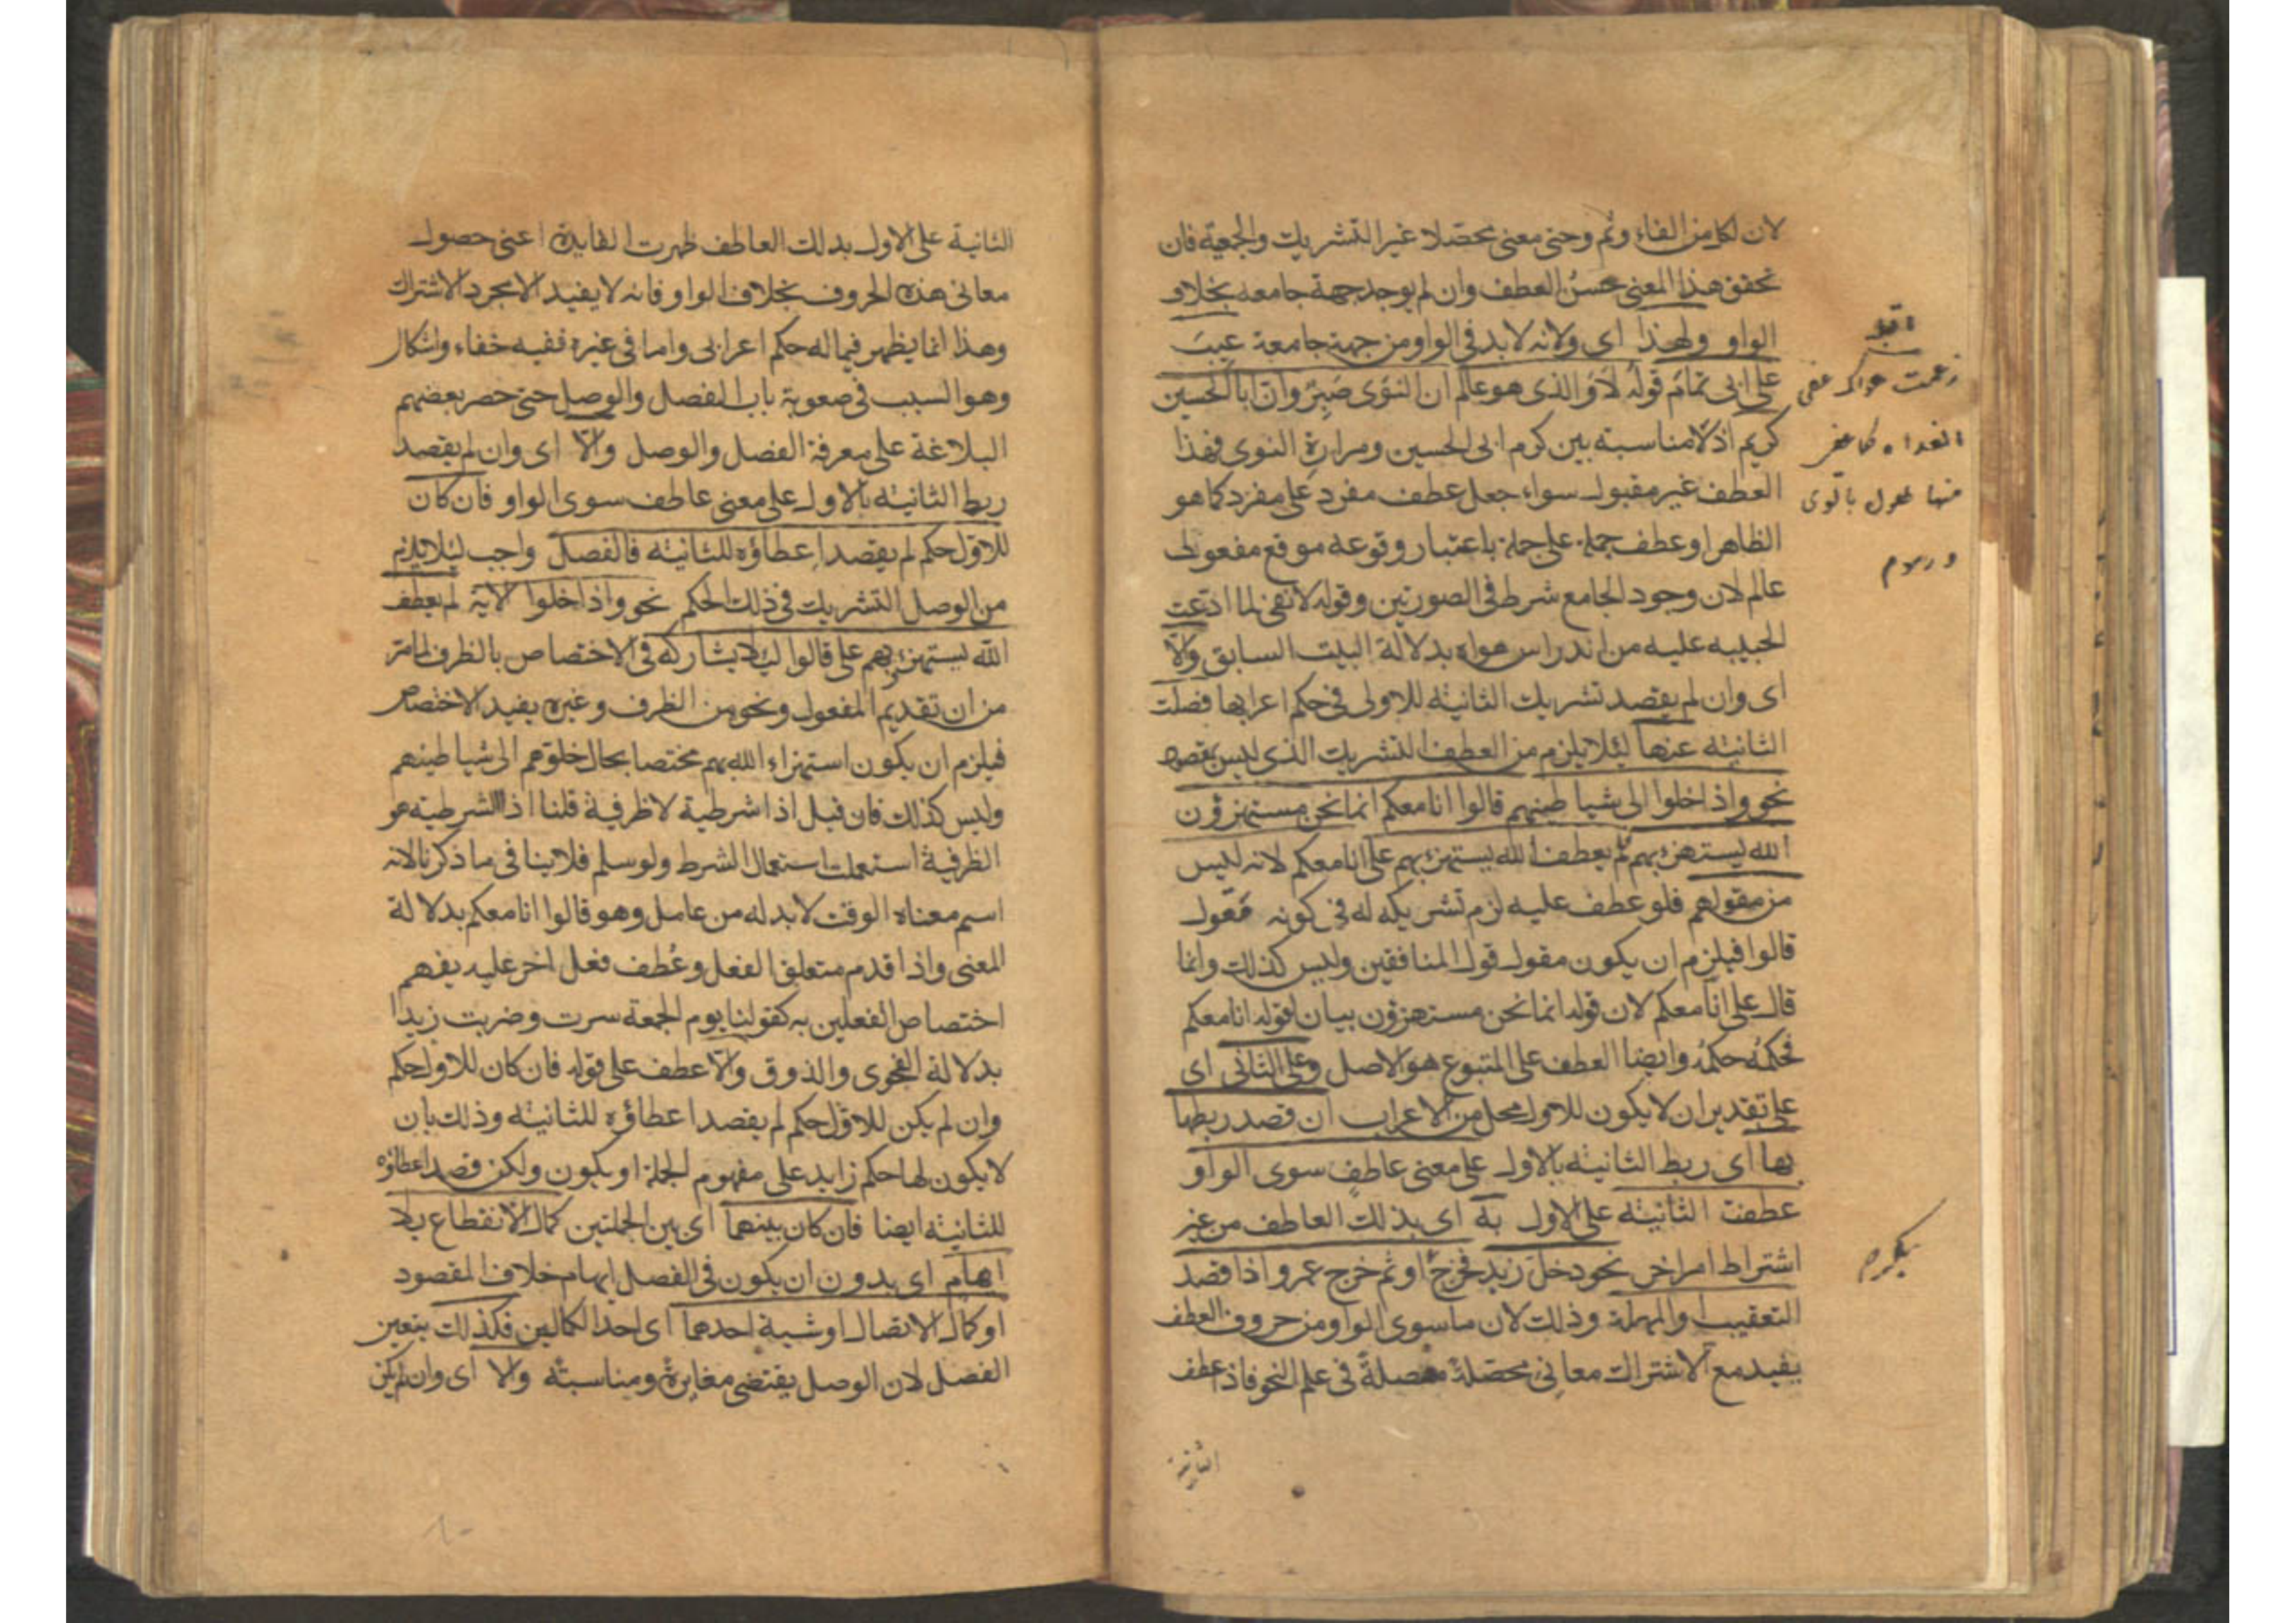 لان لكل من الفاء وثم وحتى معنى محصلا غير التشريك والجمعية فان
تحقق هذا المعنى حسن العطف وان لم يوجد جهة جامعه بخلاف
الواو ولهذا اى ولانه لابد فى الواو من جهة جامعة عيب
على ابى تمام قوله لا والذى هو عالم ان النوى صبر وان ابا الحسين
كريم اذ لا مناسبته بين كرم ابى الحسين ومرارة النوى فهذا
العطف غير مقبول سواء جعل عطف مفرد على مفرد كما هو
الظاهر او عطف جملة على جملة باعتبار وقوعه موقع مفعولى
عالم لان وجود الجامع شرط فى الصورتين وقوله لا نفى لما ادعت
الحبيبه عليه من اندراس هواه بدلالة البيت السابق والا
اى وان لم يقصد تشريك الثانية للاولى فى حكم اعرابها فصلت
الثانية عنها لئلا يلزم من العطف التشريك الذى ليس بمقصود
نحو واذا خلوا الى شياطينهم قالوا انا معكم انما نحن مستهزؤن
الله يستهزئ بهم لم يعطف الله يستهزئ بهم على انا معكم لانه ليس
من مقولهم فلو عطف عليه لزم تشريكه له فى كونه مفعول
قالوا فيلزم ان يكون مقول قول المنافقين وليس كذلك وانما
قال على انا معكم لان قوله انما نحن مستهزؤن بيان لقوله انا معكم
فحكمه حكمه وايضا العطف على المتبوع هو الاصل وعلى الثانى اى
على تقدير ان لا يكون للاولى محل من الاعراب ان قصد ربطها
بها اى ربط الثانية بالاولى على معنى عاطف سوى الواو
عطفت الثانية على الاولى به اى بذلك العاطف من غير
اشتراط امر اخر نحو دخل زيد فخرج او ثم خرج عمرو اذا قصد
التعقيب او المهلة وذلك لان ما سوى الواو من حروف العطف
يفيد مع الاشتراك معانى محصلة مفصلة فى علم النحو فاذا عطف
الثانية
زعمت هواك عفى
الغداة كما عفى
منها طلول باللوى
ورسوم
الثانية على الاولى بذلك العاطف ظهرت الفايدة اعنى حصول
معانى هذه الحروف بخلاف الواو فانه لا يفيد الا مجرد الاشتراك
وهذا انما يظهر فيما له حكم اعرابى واما فى غيره ففيه خفاء واشكال
وهو السبب فى صعوبة باب الفصل والوصل حتى حصر بعضهم
البلاغة على معرفة الفصل والوصل والا اى وان لم يقصد
ربط الثانية بالاولى على معنى عاطف سوى الواو فان كان
للاولى حكم لم يقصد اعطاؤه للثانية فالفصل واجب لئلا يلزم
من الوصل التشريك فى ذلك الحكم نحو واذا خلوا الاية لم يعطف
الله يستهزئ بهم على قالوا لئلا يشاركه فى الاختصاص بالظرف لما مر
من ان تقديم المفعول ونحوه من الظرف وغيره يفيد الاختصاص
فيلزم ان يكون استهزاء الله بهم مختصا بحال خلوهم الى شياطينهم
وليس كذلك فان قيل اذا شرطية لا ظرفية قلنا اذا الشرطية هو
الظرفية استعملت استعمال الشرط ولو سلم فلا ينافى ما ذكرنا لانه
اسم معناه الوقت لابد له من عامل وهو قالوا انا معكم بدلالة
المعنى واذا قدم متعلق الفعل وعطف فعل اخر عليه يفهم
اختصاص الفعلين به كقولنا يوم الجمعة سرت وضربت زيدا
بدلالة الفحوى والذوق والا عطف على قوله فان كان للاولى حكم
وان لم يكن للاولى حكم لم يقصد اعطاؤه للثانية وذلك بان
لا يكون لها حكم زايد على مفهوم الجملة او يكون ولكن قصد اعطاؤه
للثانية ايضا فان كان بينهما اى بين الجملتين كمال الانقطاع بلا
ايهام اى بدون ان يكون فى الفصل ايهام خلاف المقصود
او كمال الاتصال او شبه احدهما اى احد الكمالين فكذلك يتعين
الفصل لان الوصل يقتضى مغايرة ومناسبتة والا اى وان لم يكن